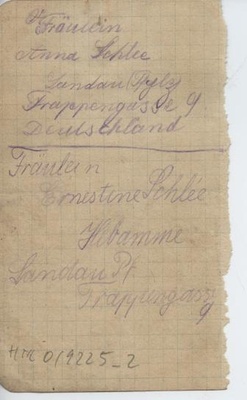 Fräulein
Anna Schlee
Landau Pfalz
Trappengasse 9.
Deutschland
Fräulein
Ernestine Schlée
Hebamme
Landau Pf
HM 019225_2